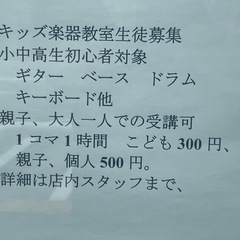 キッズ楽器教室生徒募集
小中高生初心者対象
ギター　ベース　ドラム
キーボード他
親子、大人一人での受講可
1コマ1時間　こども300円、
親子、個人500円。
詳細は店内スタッフまで、